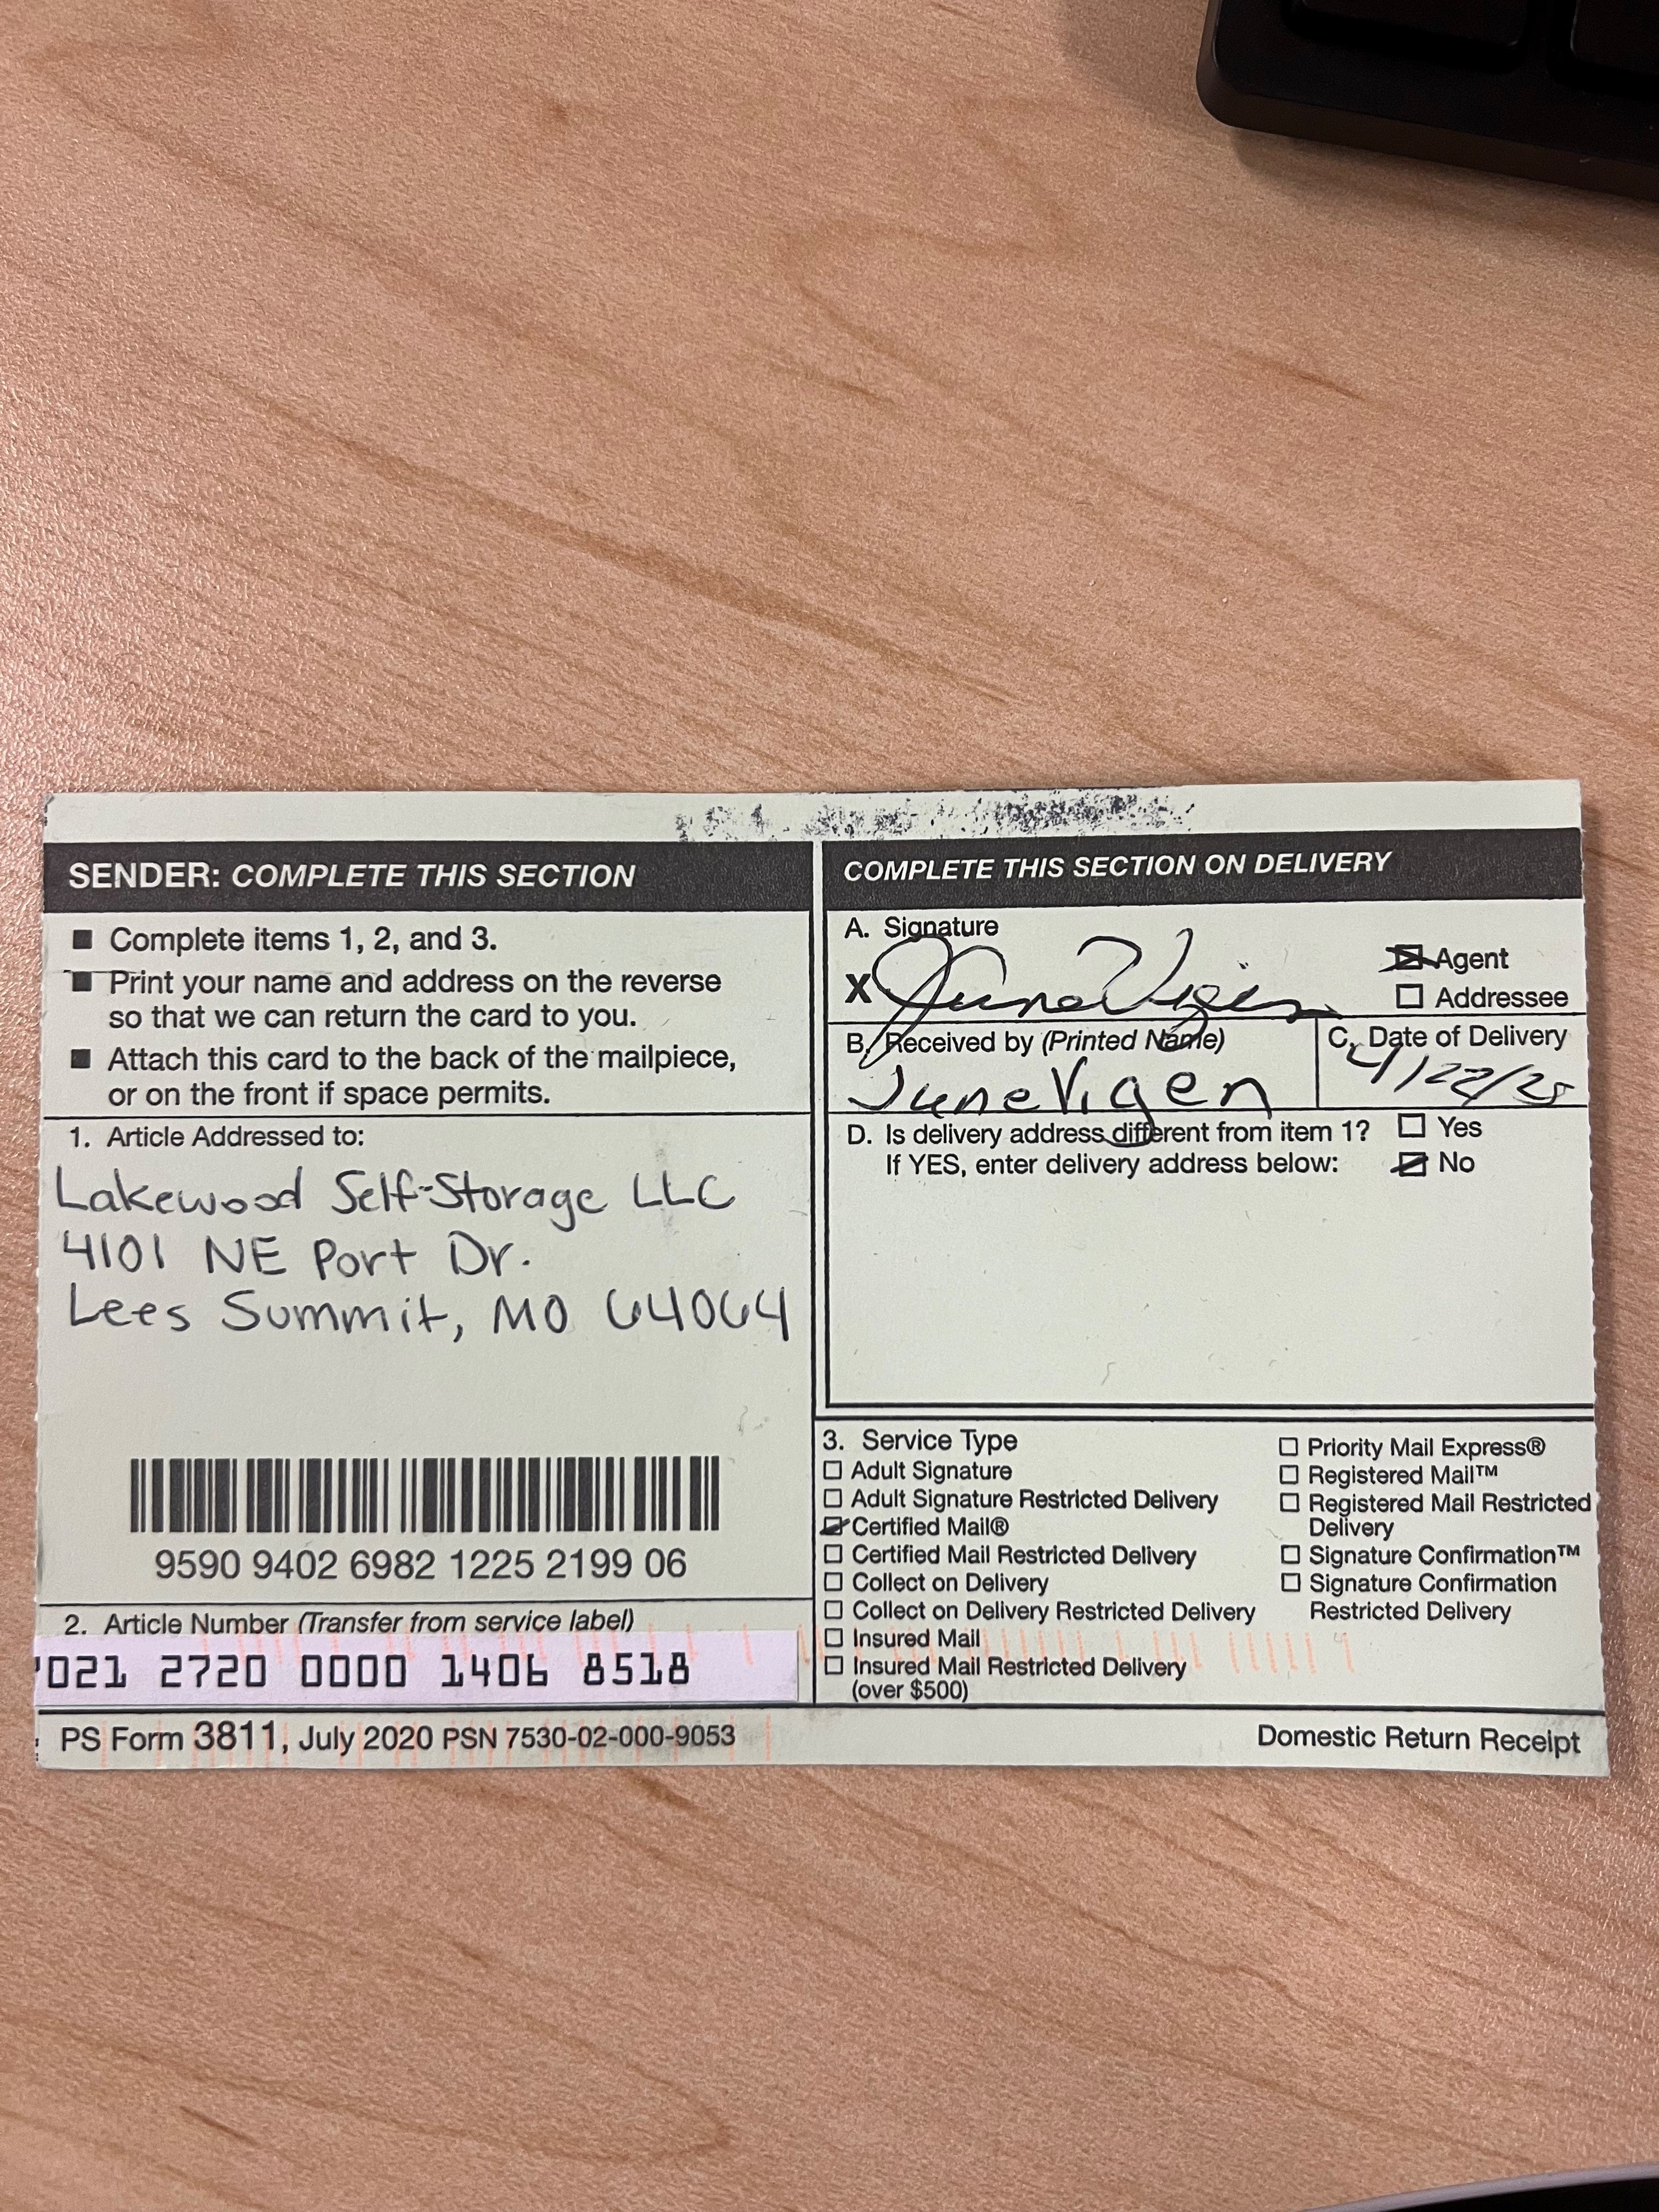 SENDER: COMPLETE THIS SECTION
■ Complete items 1, 2, and 3.
■ Print your name and address on the reverse
so that we can return the card to you.
■ Attach this card to the back of the mailpiece,
or on the front if space permits.
1. Article Addressed to:
Lakewood Self-Storage LLC
4101 NE Port Dr.
Lees Summit, MO 64064
9590 9402 6982 1225 2199 06
2. Article Number (Transfer from service label)
021 2720 0000 1406 8518
COMPLETE THIS SECTION ON DELIVERY
A. Signature
X June Vigen
☒ Agent
☐ Addressee
B. Received by (Printed Name)
June Vigen
C. Date of Delivery
4/22/25
D. Is delivery address different from item 1? ☐ Yes
If YES, enter delivery address below: ☒ No
3. Service Type
☐ Adult Signature
☐ Adult Signature Restricted Delivery
☒ Certified Mail®
☐ Certified Mail Restricted Delivery
☐ Collect on Delivery
☐ Collect on Delivery Restricted Delivery
☐ Insured Mail
☐ Insured Mail Restricted Delivery
(over $500)
☐ Priority Mail Express®
☐ Registered Mail™
☐ Registered Mail Restricted
Delivery
☐ Signature Confirmation™
☐ Signature Confirmation
Restricted Delivery
PS Form 3811, July 2020 PSN 7530-02-000-9053
Domestic Return Receipt